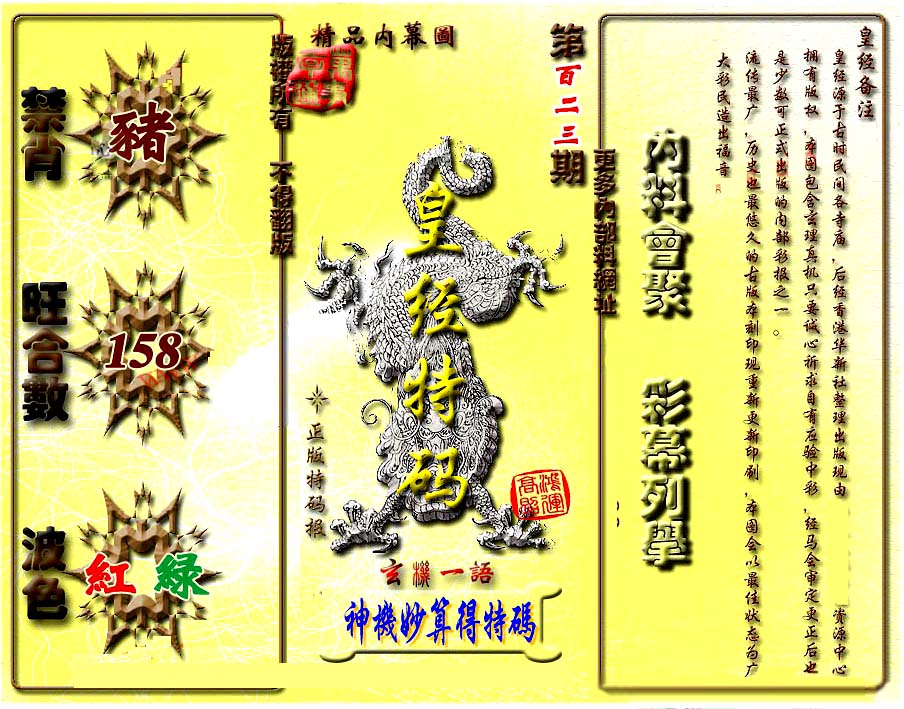 禁肖
豬
旺合數
158
波色
紅 綠
版權所有 不得翻版
精品内幕圖
第百二三期
皇经特码
正版特码报
鴻運高照
玄機一語
神機妙算得特碼
更多内部料網址
内料會聚 彩幕列舉
皇经备注
皇经源于古时民间各寺庙，后经香港华新社整理出版现由 资源中心
拥有版权，本图包含玄理真机只要诚心祈求自有应验中彩，经马会审定更正后也
是少数可正式出版的内部彩报之一。
流传最广，历史也最悠久的古版本刻印现重新更新印刷，本图会以最佳状态为广
大彩民造出福音。